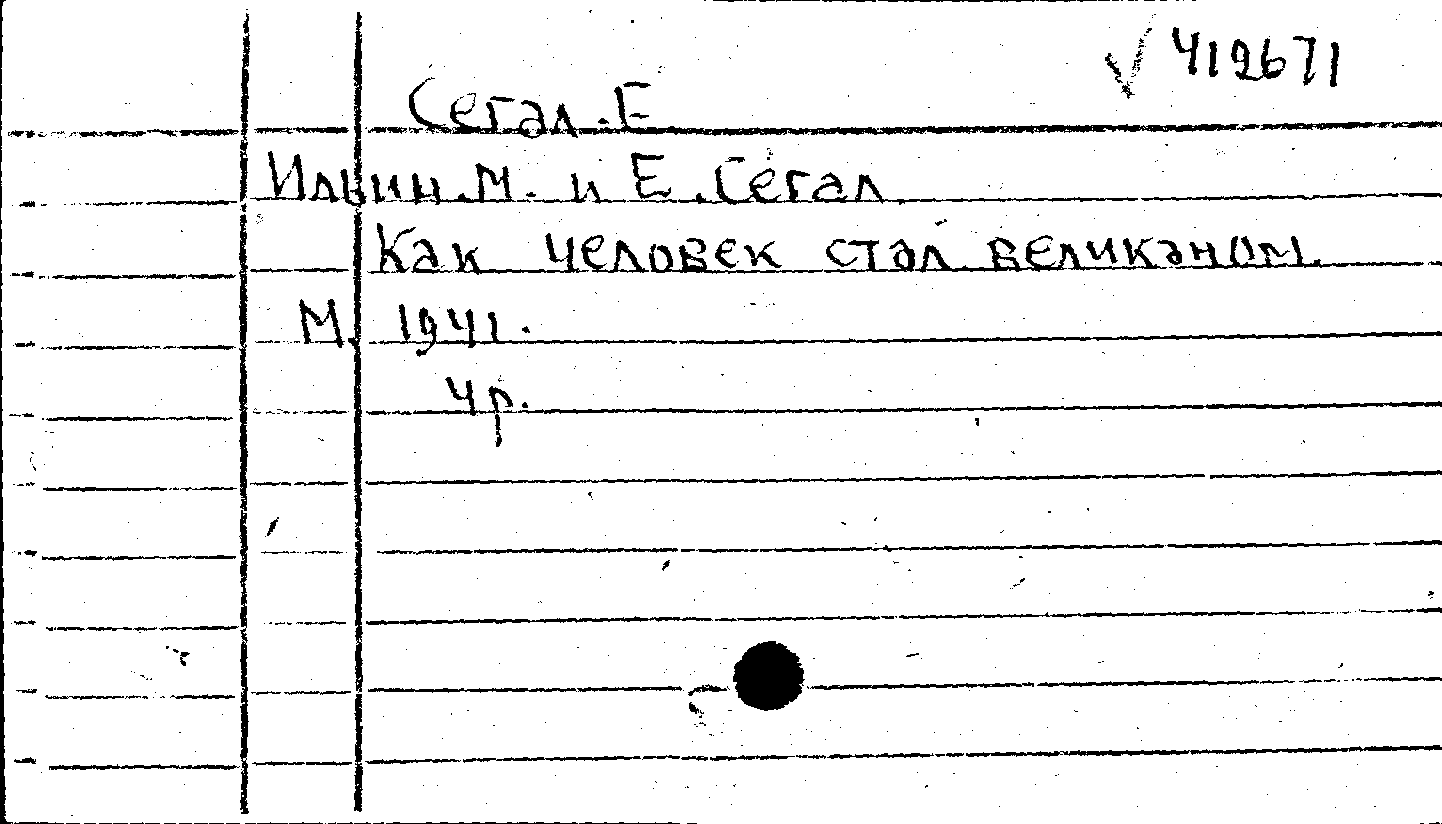 √ 412671
Сегал. Е
Ильин. М. и Е. Сегал.
Как человек стал великаном.
М. 1941.
4 р.